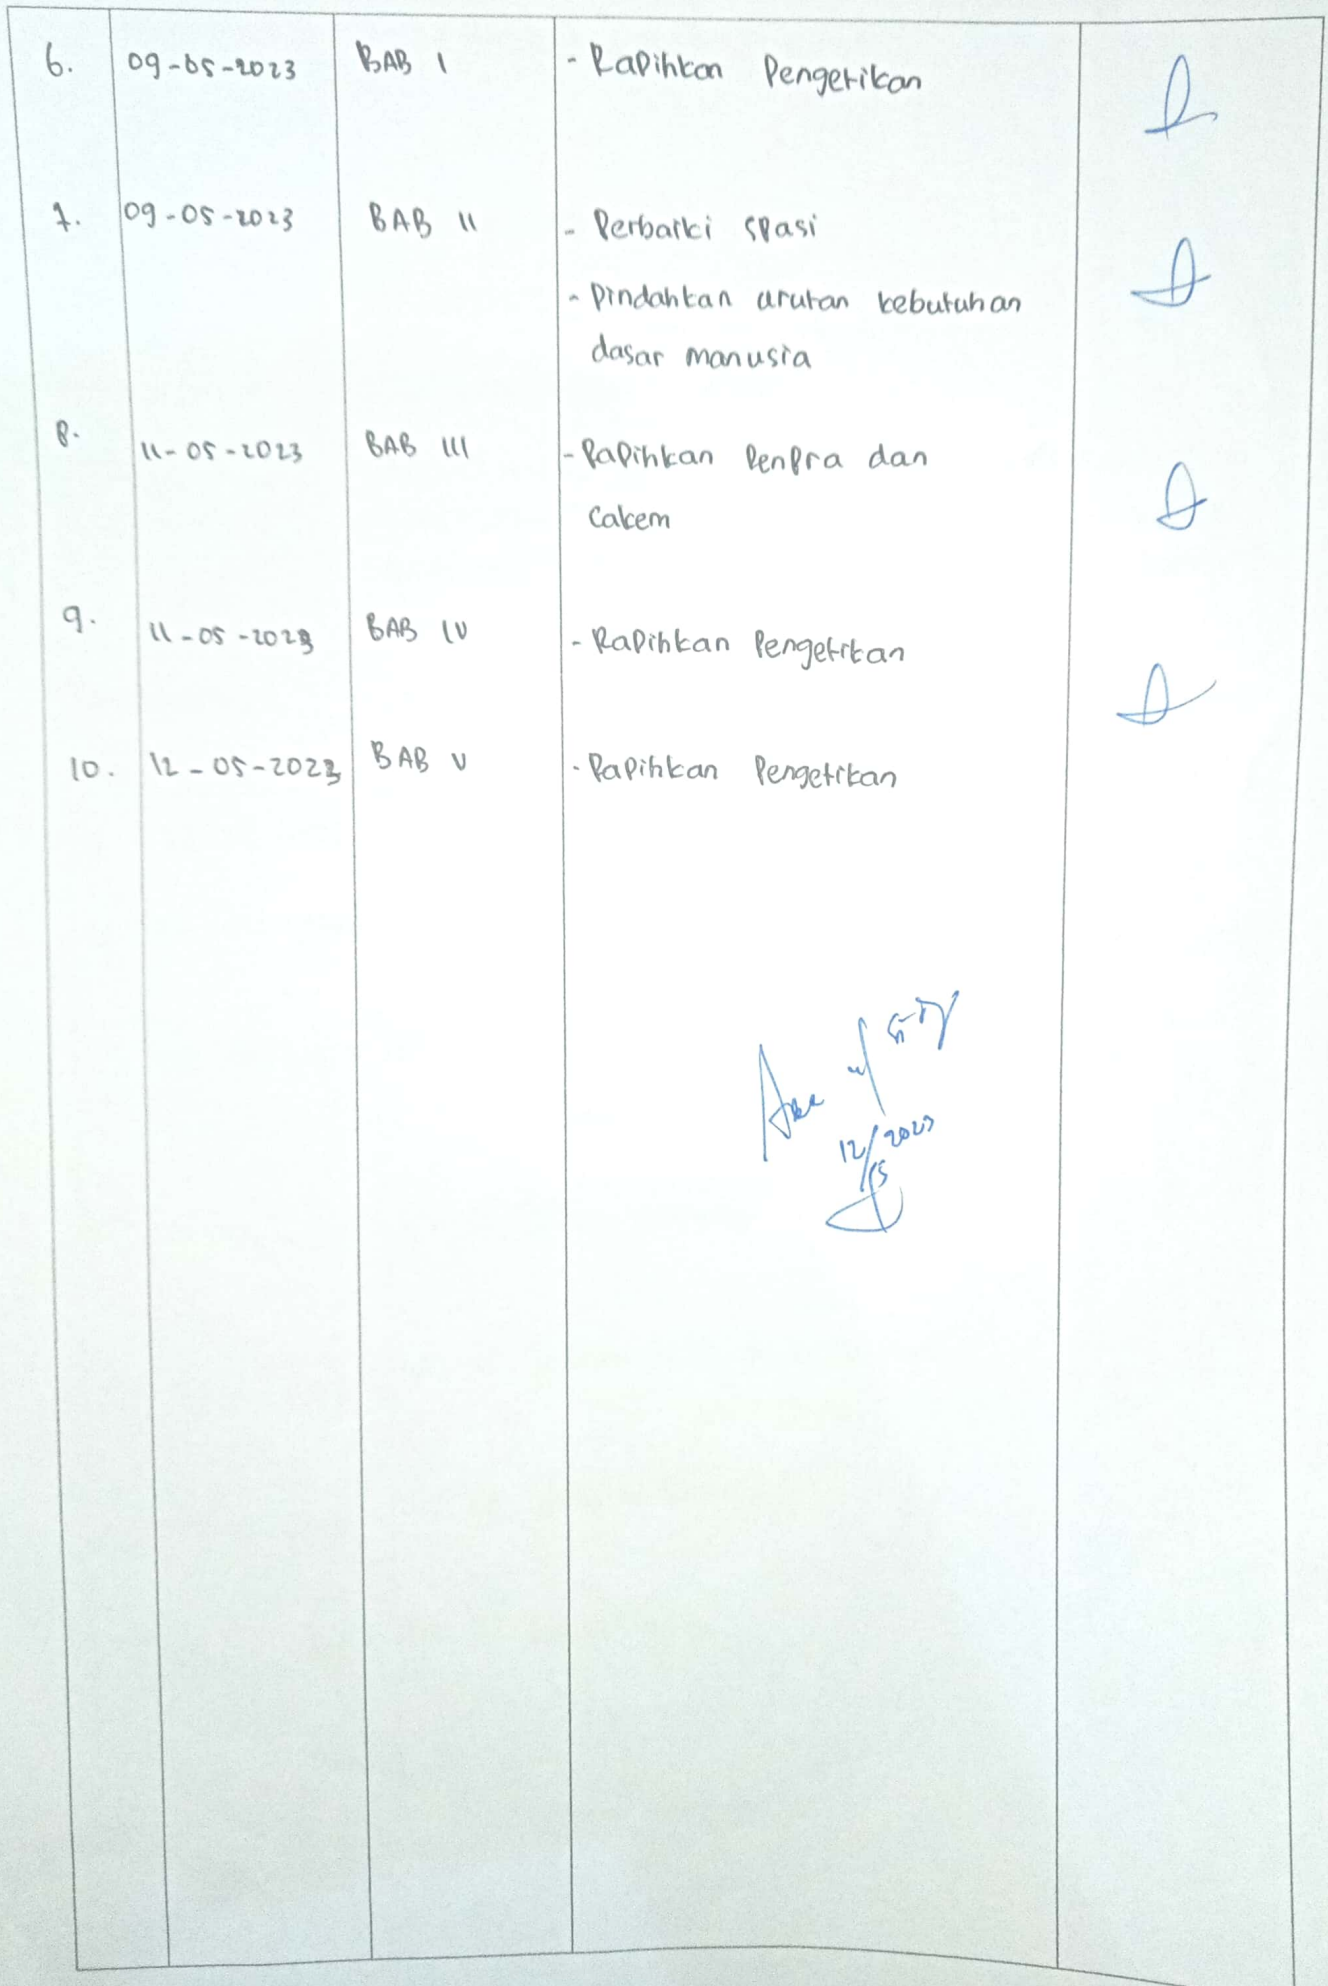 6. 09-05-2023 BAB I - Rapihkan Pengetikan
7. 09-05-2023 BAB II - Perbaiki spasi
- Pindahkan urutan kebutuhan
dasar manusia
8. 11-05-2023 BAB III - Rapihkan Penpra dan
Cakem
9. 11-05-2023 BAB IV - Rapihkan Pengetikan
10. 12-05-2023 BAB V - Rapihkan Pengetikan
12/5 2023